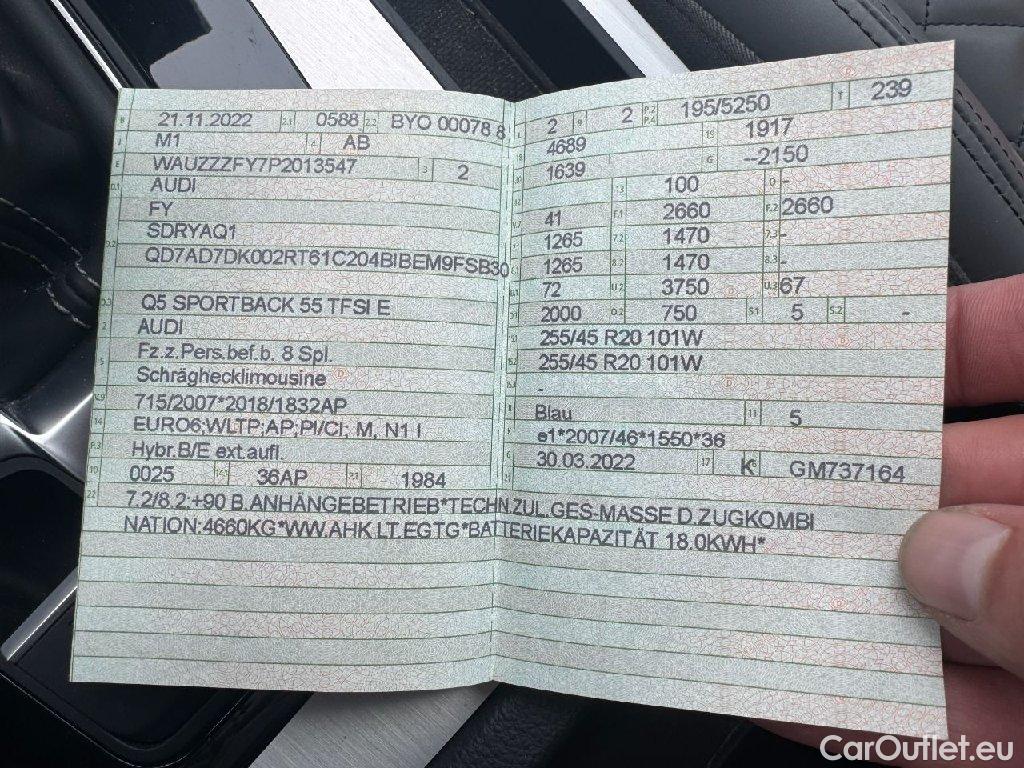 B 21.11.2022 2.1 0588 2.2 BYO 00078 8
J M1 4 AB
E WAUZZZFY7P2013547 3 2
D.1 AUDI
FY
SDRYAQ1
D.2 QD7AD7DK002RT61C204BIBEM9FSB30
D.3 Q5 SPORTBACK 55 TFSI E
2 AUDI
5 Fz.z.Pers.bef.b. 8 Spl.
Schräghecklimousine
V.9 715/2007*2018/1832AP
14 EURO6;WLTP;AP;PI/CI; M, N1 I
P.3 Hybr.B/E ext.aufl.
10 0025 14.1 36AP P.1 1984
L 2 9 2 P.2 P.4 195/5250 T 239
18 4689 19 1917
20 1639 G --2150
12 - 13 100 Q -
V.7 41 F.1 2660 F.2 2660
7.1 1265 7.2 1470 7.3 -
8.1 1265 8.2 1470 8.3 -
U.1 72 U.2 3750 U.3 67
O.1 2000 O.2 750 S.1 5 S.2 -
15.1 255/45 R20 101W
15.2 255/45 R20 101W
-
R Blau 11 5
K e1*2007/46*1550*36
6 30.03.2022 17 K 16 GM737164
21
22 7.2/8.2:+90 B.ANHÄNGEBETRIEB*TECHN.ZUL.GES.MASSE D.ZUGKOMBI
NATION:4660KG*WW.AHK LT.EGTG*BATTERIEKAPAZITÄT 18.0KWH*
CarOutlet.eu